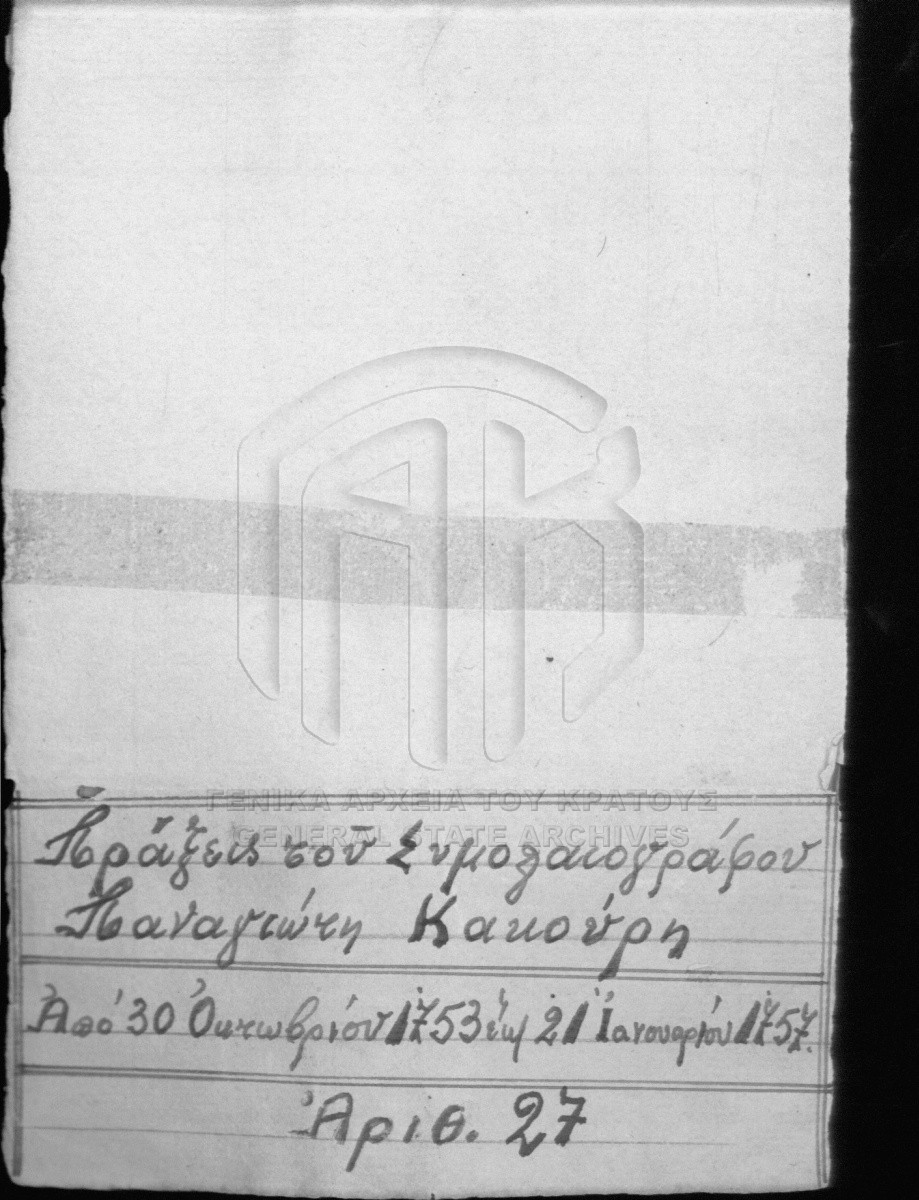 ΓΕΝΙΚΑ ΑΡΧΕΙΑ ΤΟΥ ΚΡΑΤΟΥΣ
GENERAL STATE ARCHIVES
Πράξεις τοῦ Συμολαιογράφου
Παναγιώτη Κακούρη
Ἀπό 30 Ὀκτωβρίου 1753 ἕως 21 Ἰανουαρίου 1757.
Ἀριθ. 27